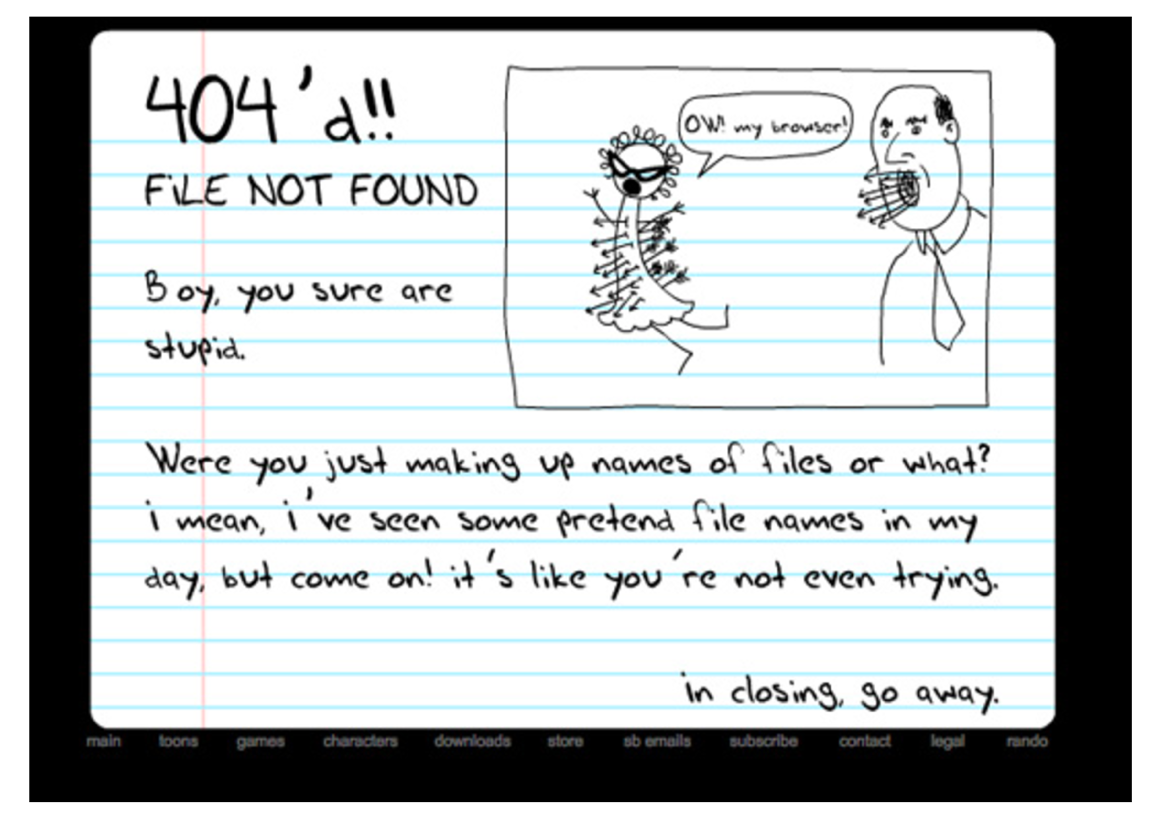 404'd!!
FiLE NOT FOUND
OW! my browser!
Boy, you sure are
stupid.
Were you just making up names of files or what?
i mean, i've seen some pretend file names in my
day, but come on! it's like you're not even trying.
in closing, go away.
main toons games characters downloads store sb emails subscribe contact legal rando